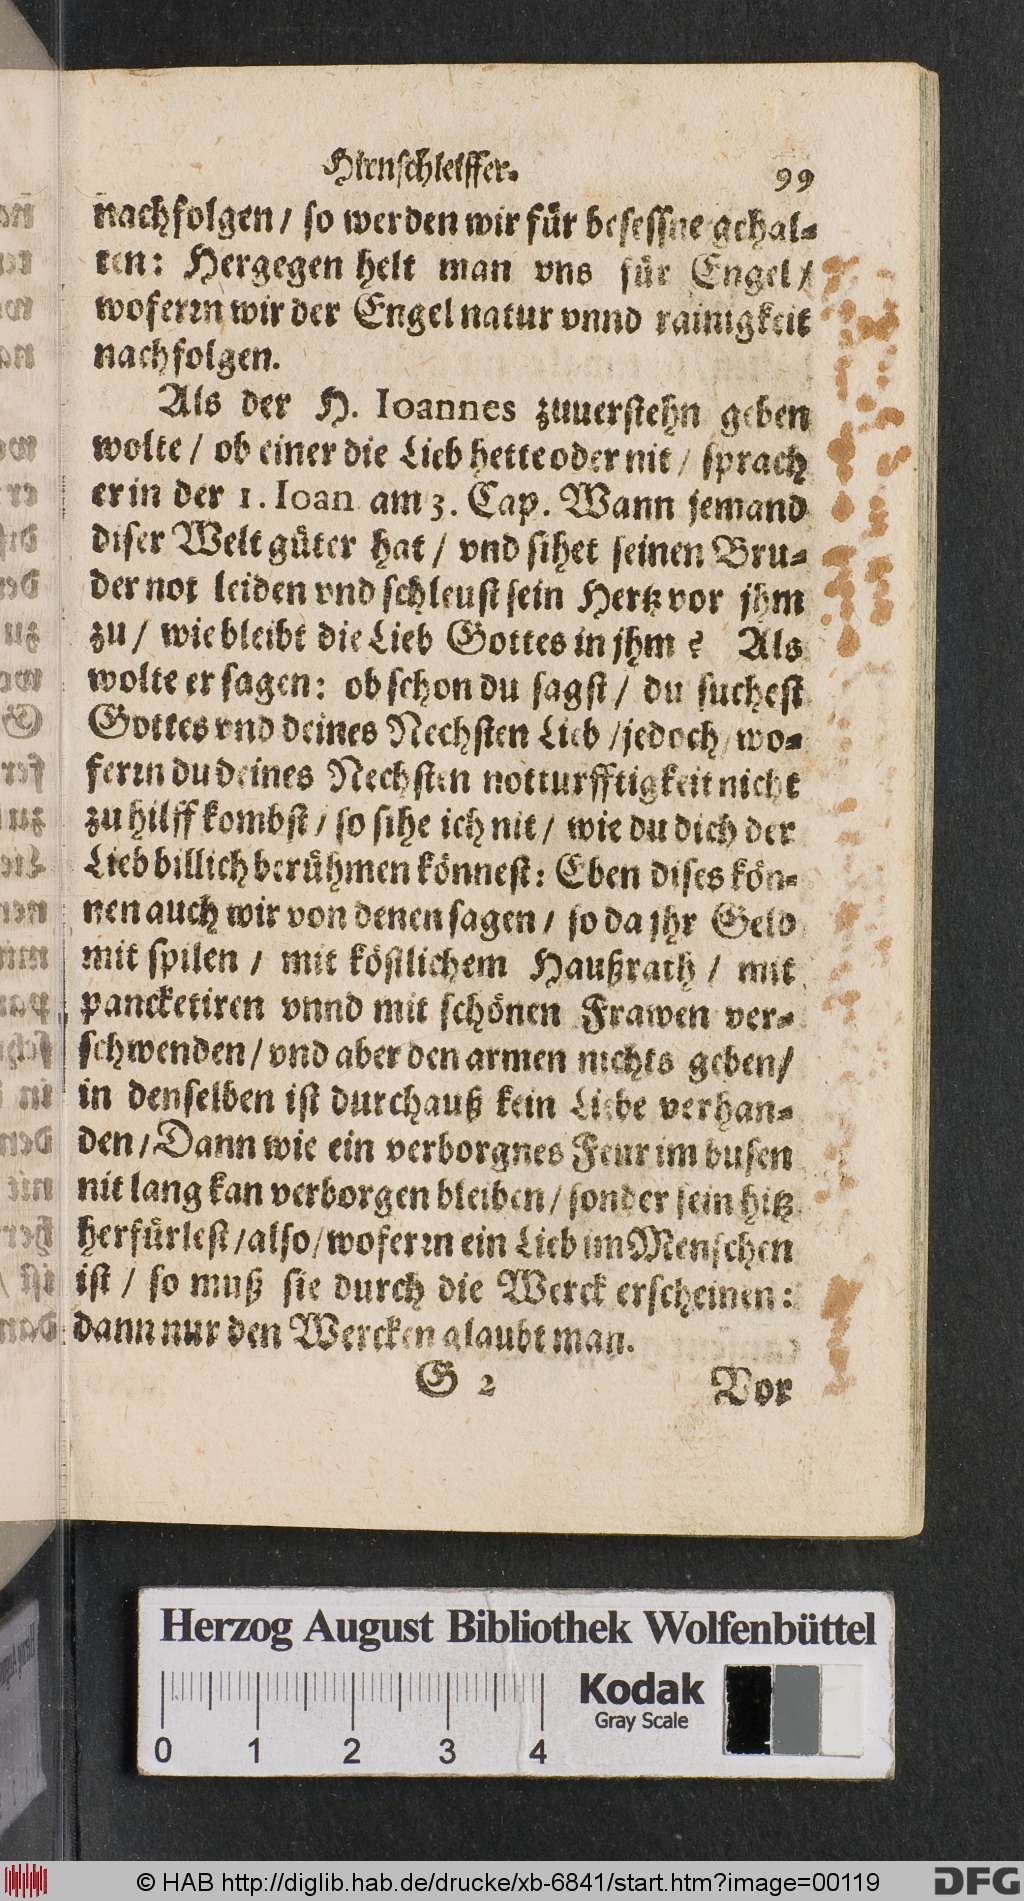 Hirnschleiffer.
99
nachfolgen / so werden wir für besessne gehal-
ten: Hergegen helt man vns für Engel /
woferrn wir der Engel natur vnnd rainigkeit
nachfolgen.
Als der H. Ioannes zuuerstehn geben
wolte / ob einer die Lieb hette oder nit / sprach
er in der 1. Ioan am 3. Cap. Wann jemand
diser Welt güter hat / vnd sihet seinen Bru-
der not leiden vnd schleust sein Hertz vor jhm
zu / wie bleibt die Lieb Gottes in jhm ? Als
wolte er sagen: ob schon du sagst / du suchest
Gottes vnd deines Nechsten Lieb / jedoch / wo-
ferrn du deines Nechsten notturfftigkeit nicht
zu hilff kombst / so sihe ich nit / wie du dich der
Lieb billich berühmen könnest: Eben dises kön-
nen auch wir von denen sagen / so da jhr Geld
mit spilen / mit köstlichem Haußrath / mit
pancketiren vnnd mit schönen Frawen ver-
schwenden / vnd aber den armen nichts geben /
in denselben ist durchauß kein Liebe verhan-
den / Dann wie ein verborgnes Feur im busen
nit lang kan verborgen bleiben / sonder sein hitz
herfürlest / also / woferrn ein Lieb im Menschen
ist / so muß sie durch die Werck erscheinen:
dann nur den Wercken glaubt man.
G 2
Vor
Herzog August Bibliothek Wolfenbüttel
Kodak
Gray Scale
0 1 2 3 4
© HAB http://diglib.hab.de/drucke/xb-6841/start.htm?image=00119
DFG